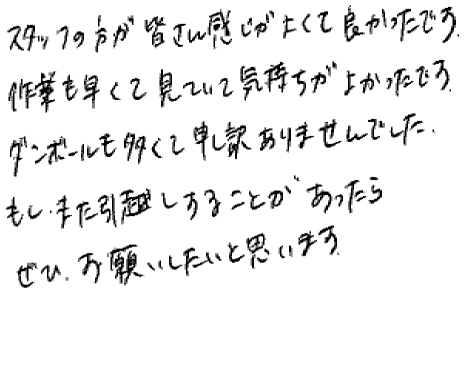 スタッフの方が皆さん感じがよくて良かったです.
作業も早くて見ていて気持ちがよかったです.
ダンボールも多くて申し訳ありませんでした.
もし.また引越しすることがあったら
ぜひ.お願いしたいと思います.